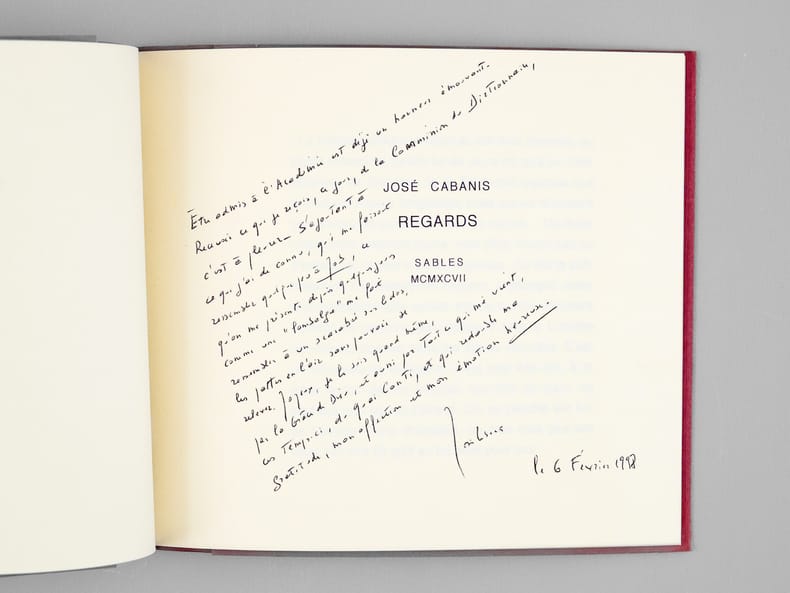 Être admis à l'Académie est déjà un honneur émouvant.
Recevoir ce que je reçois, ce jour, de la Commission du Dictionnaire,
c'est à pleurer. S'ajoutant à
ce que j'ai de connu, qui me faisait
ressembler quelque peu à Job, ce
qu'on me présente depuis quelques jours
comme une "lombalgie" me fait
ressembler à un scarabée sur le dos,
les pattes en l'air sans pouvoir se
relever. Joyeux, je le suis quand même,
par la Grâce de Dieu, et ravi par tout ce qui me vient,
ces temps-ci, du quai Conti, et qui redouble ma
gratitude, mon affection et mon émotion heureuse.
le 6 Février 1998
JOSÉ CABANIS
REGARDS
SABLES
MCMXCVII